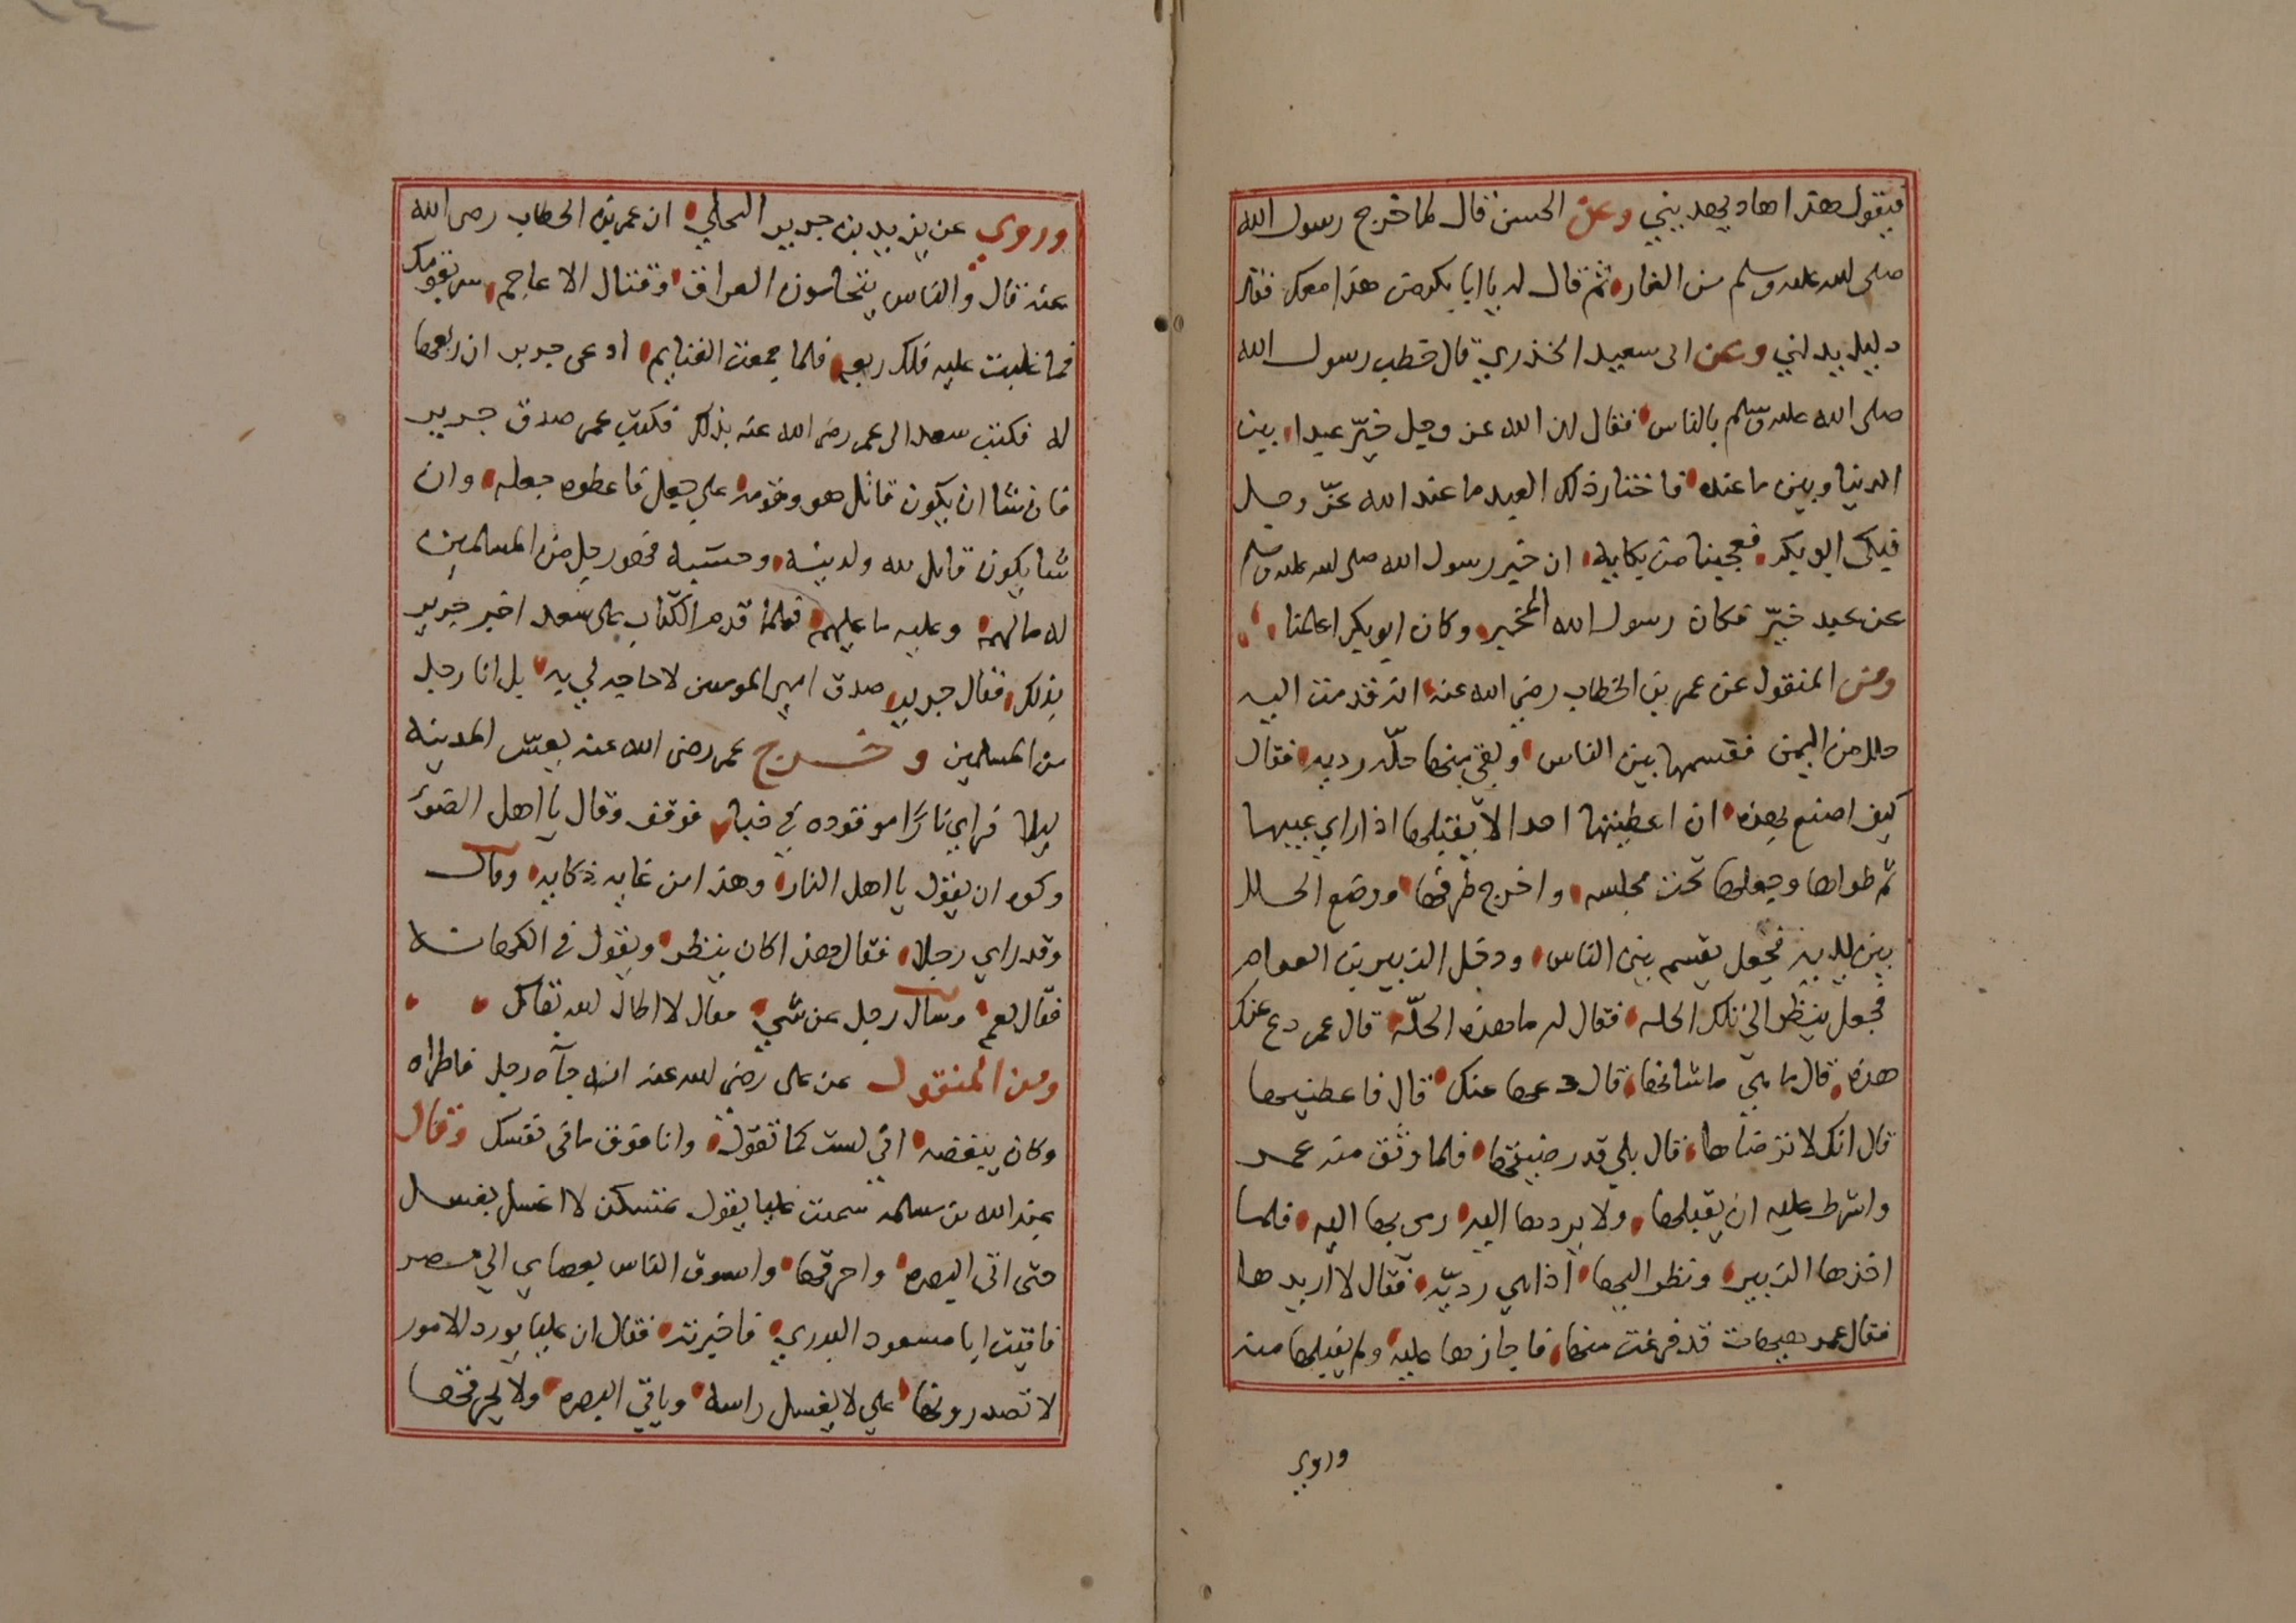 فيقول هذا هاد يهديني وعن الحسن قال لما خرج رسول الله
صلى الله عليه وسلم من الغار ثم قال له يا ابا بكر من هذا معك فقال
دليل يدلني وعن ابى سعيد الخذري قال خطب رسول الله
صلى الله عليه وسلم بالناس فقال ان الله عز وجل خيّر عبدا بين
الدنيا وبين ما عنده فاختار ذلك العبد ما عند الله عزّ وجل
فبكى ابو بكر فعجبنا من بكايه ان خبر رسول الله صلى الله عليه وسلم
عن عبد خيّر فكان رسول الله المخير وكان ابو بكر اعلمنا
ومن المنقول عن عمر بن الخطاب رضي الله عنه انه قدمت اليه
حلل من اليمن فقسمها بين الناس وبقي منها حلّه رديه فقال
كيف اصنع بهذه ان اعطيتها احدا لا يقبلها اذا راي عيبها
ثم طواها وجعلها تحت مجلسه واخرج طرفها ووضع الحلل
بين يديه فجعل يقسم بين الناس ودخل الزبير بن العوام
فجعل ينظر الى تلك الحله فقال له ما هذه الحلّة قال عمر دع عنك
هذه قال ما هي ما شانها قال دعها عنك قال فاعطنيها
قال انك لا ترضاها قال بلي قد رضيتها فلما وثق منه عمر
واشترط عليه ان يقبلها ولا يردها اليه رمى بها اليه فلما
اخذها الزبير ونظر اليها اذا هي رديّه فقال لا اريدها
فقال عمر هيهات قد فرغت منها فاجازها عليه ولم يقبلها منه
وروي
وروي عن يزيد بن جرير البجلي ان عمر بن الخطاب رضى الله
عنه قال والناس يتحامون العراق وقتال الاعاجم سر بقومك
فما غلبت عليه فلك ربعه فلما جمعت الغنايم ادعى جرير ان ربعها
له فكتب سعد الى عمر رضى الله عنه بذلك فكتب عمر صدق جرير
فان شا ان يكون قاتل هو وقومه علي جعل فاعطوه جعله وان
شا يكون قاتل لله ولدينه وحسبه فهو رجل من المسلمين
له ما لهم وعليه ما عليهم فلما قدم الكتاب على سعد اخبر جرير
بذلك فقال جرير صدق امير المومنين لا حاجه لي به بل انا رجل
من المسلمين وخرج عمر رضى الله عنه يعسّ المدينه
ليلا فراي نارًا موقوده في خبا فوقف وقال يا اهل الضوء
وكره ان يقول يا اهل النار وهذا من غايه ذكايه وقال
وقد راي رجلا فقال هذا كان ينظر ويقول في الكهانه
فقال نعم وسال رجل عن شي فقال لا اطال الله بقاك
ومن المنقول عن على رضى الله عنه انه جآه رجل فاطراه
وكان يبغضه اني لست كما تقول وانا فوق ما في نفسك وقال
عبد الله بن سلمه سمعت عليا يقول لا اغسل بغسل
حتى اتى البصره واحرقها واسوق الناس بعصاي الي مصر
فاتيت ابا مسعود البدري فاخبرته فقال ان عليا يورد الامور
لا تصدرونها علي لا يغسل راسه وياتي البصره ولا يحرقها